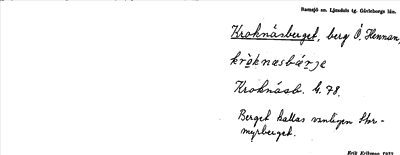 Ramsjö sn. Ljusdals tg. Gävleborgs län.
Kroknäsberget, berg Ö. Hennan,
kròknæsbárje
Kroknäsb. k. 78.
Berget kallas vanligen Stor-
myrberget.
Erik Erikson 1932